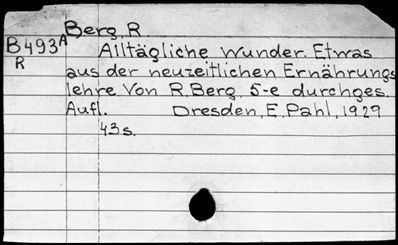 Berg, R.
B493A Alltägliche Wunder. Etwas
R
aus der neuzeitlichen Ernährungs
lehre Von R. Berg. 5-e durchges.
Aufl. Dresden, E. Pahl, 1929
43 s.